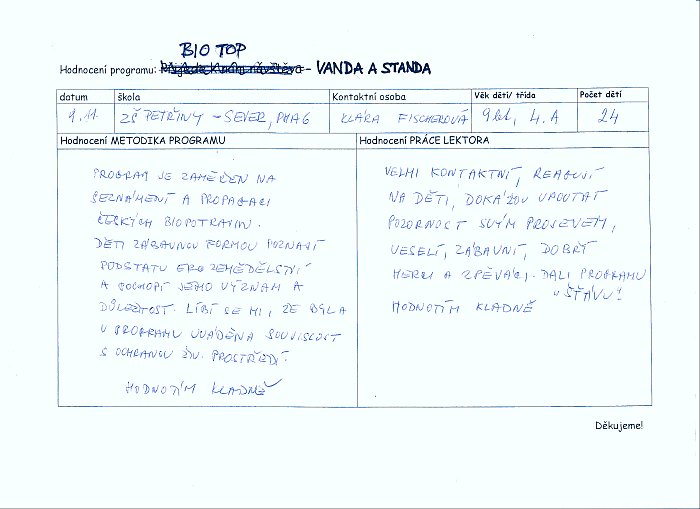 BIO TOP
Hodnocení programu: - VANDA A STANDA
datum škola Kontaktní osoba Věk dětí/ třída Počet dětí
9.11. ZŠ PETŘINY - SEVER, PHA6 KLÁRA FISCHEROVÁ 9 let, 4.A 24
Hodnocení METODIKA PROGRAMU Hodnocení PRÁCE LEKTORA
PROGRAM JE ZAMĚŘEN NA
SEZNÁMENÍ A PROPAGACI
ČESKÝCH BIOPOTRAVIN.
DĚTI ZÁBAVNOU FORMOU POZNAJÍ
PODSTATU EKO ZEMĚDĚLSTVÍ
A POCHOPÍ JEHO VÝZNAM A
DŮLEŽITOST. LÍBÍ SE MI, ŽE BYLA
V PROGRAMU UVÁDĚNA SOUVISLOST
S OCHRANOU ŽIV. PROSTŘEDÍ.
HODNOTÍM KLADNĚ
VELMI KONTAKTNÍ, REAGUJÍ
NA DĚTI, DOKÁŽOU UPOUTAT
POZORNOST SVÝM PROJEVEM,
VESELÍ, ZÁBAVNÍ, DOBŘÍ
HERCI A ZPĚVÁCI. DALI PROGRAMU
"ŠŤÁVU"
HODNOTÍM KLADNĚ
Děkujeme!